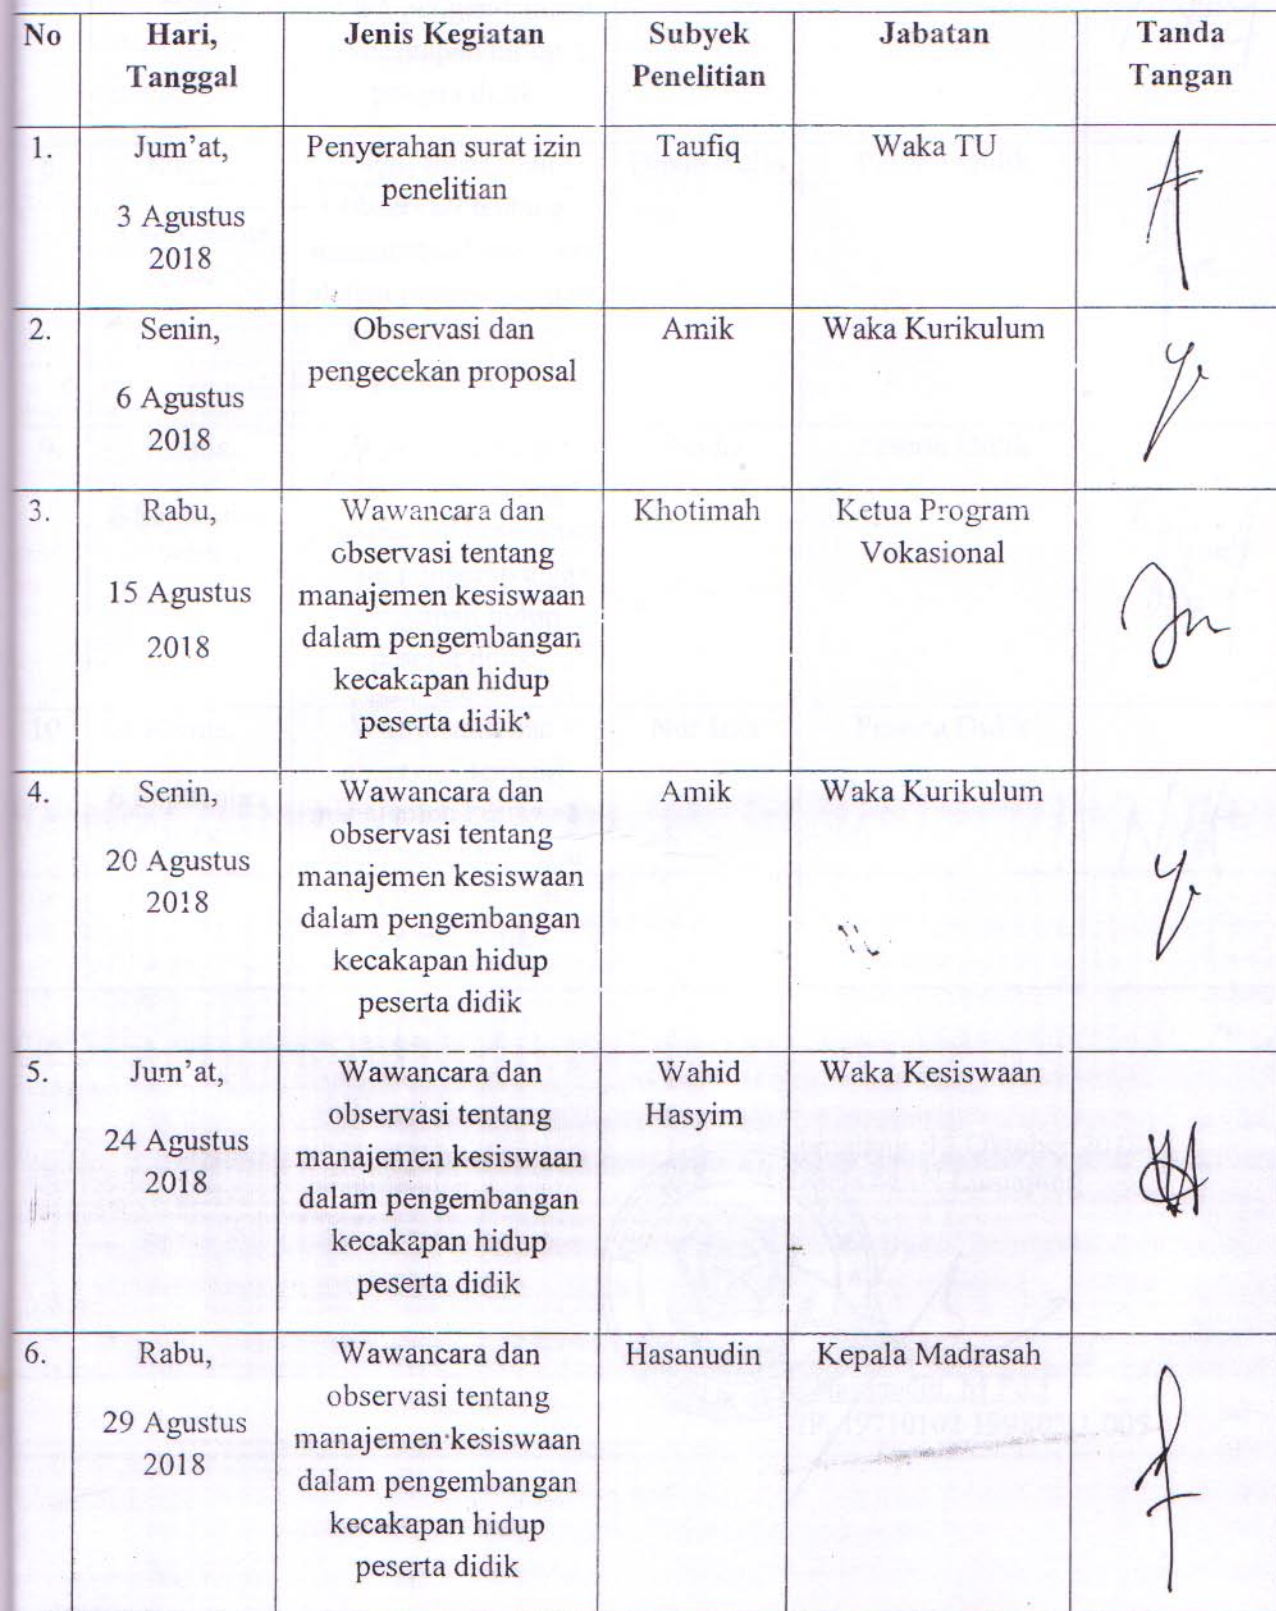 No
Hari,
Tanggal
Jenis Kegiatan
Subyek
Penelitian
Jabatan
Tanda
Tangan
1.
Jum'at,
3 Agustus
2018
Penyerahan surat izin
penelitian
Taufiq
Waka TU
2.
Senin,
6 Agustus
2018
Observasi dan
pengecekan proposal
Amik
Waka Kurikulum
3.
Rabu,
15 Agustus
2018
Wawancara dan
observasi tentang
manajemen kesiswaan
dalam pengembangan
kecakapan hidup
peserta didik
Khotimah
Ketua Program
Vokasional
4.
Senin,
20 Agustus
2018
Wawancara dan
observasi tentang
manajemen kesiswaan
dalam pengembangan
kecakapan hidup
peserta didik
Amik
Waka Kurikulum
5.
Jum'at,
24 Agustus
2018
Wawancara dan
observasi tentang
manajemen kesiswaan
dalam pengembangan
kecakapan hidup
peserta didik
Wahid
Hasyim
Waka Kesiswaan
6.
Rabu,
29 Agustus
2018
Wawancara dan
observasi tentang
manajemen kesiswaan
dalam pengembangan
kecakapan hidup
peserta didik
Hasanudin
Kepala Madrasah